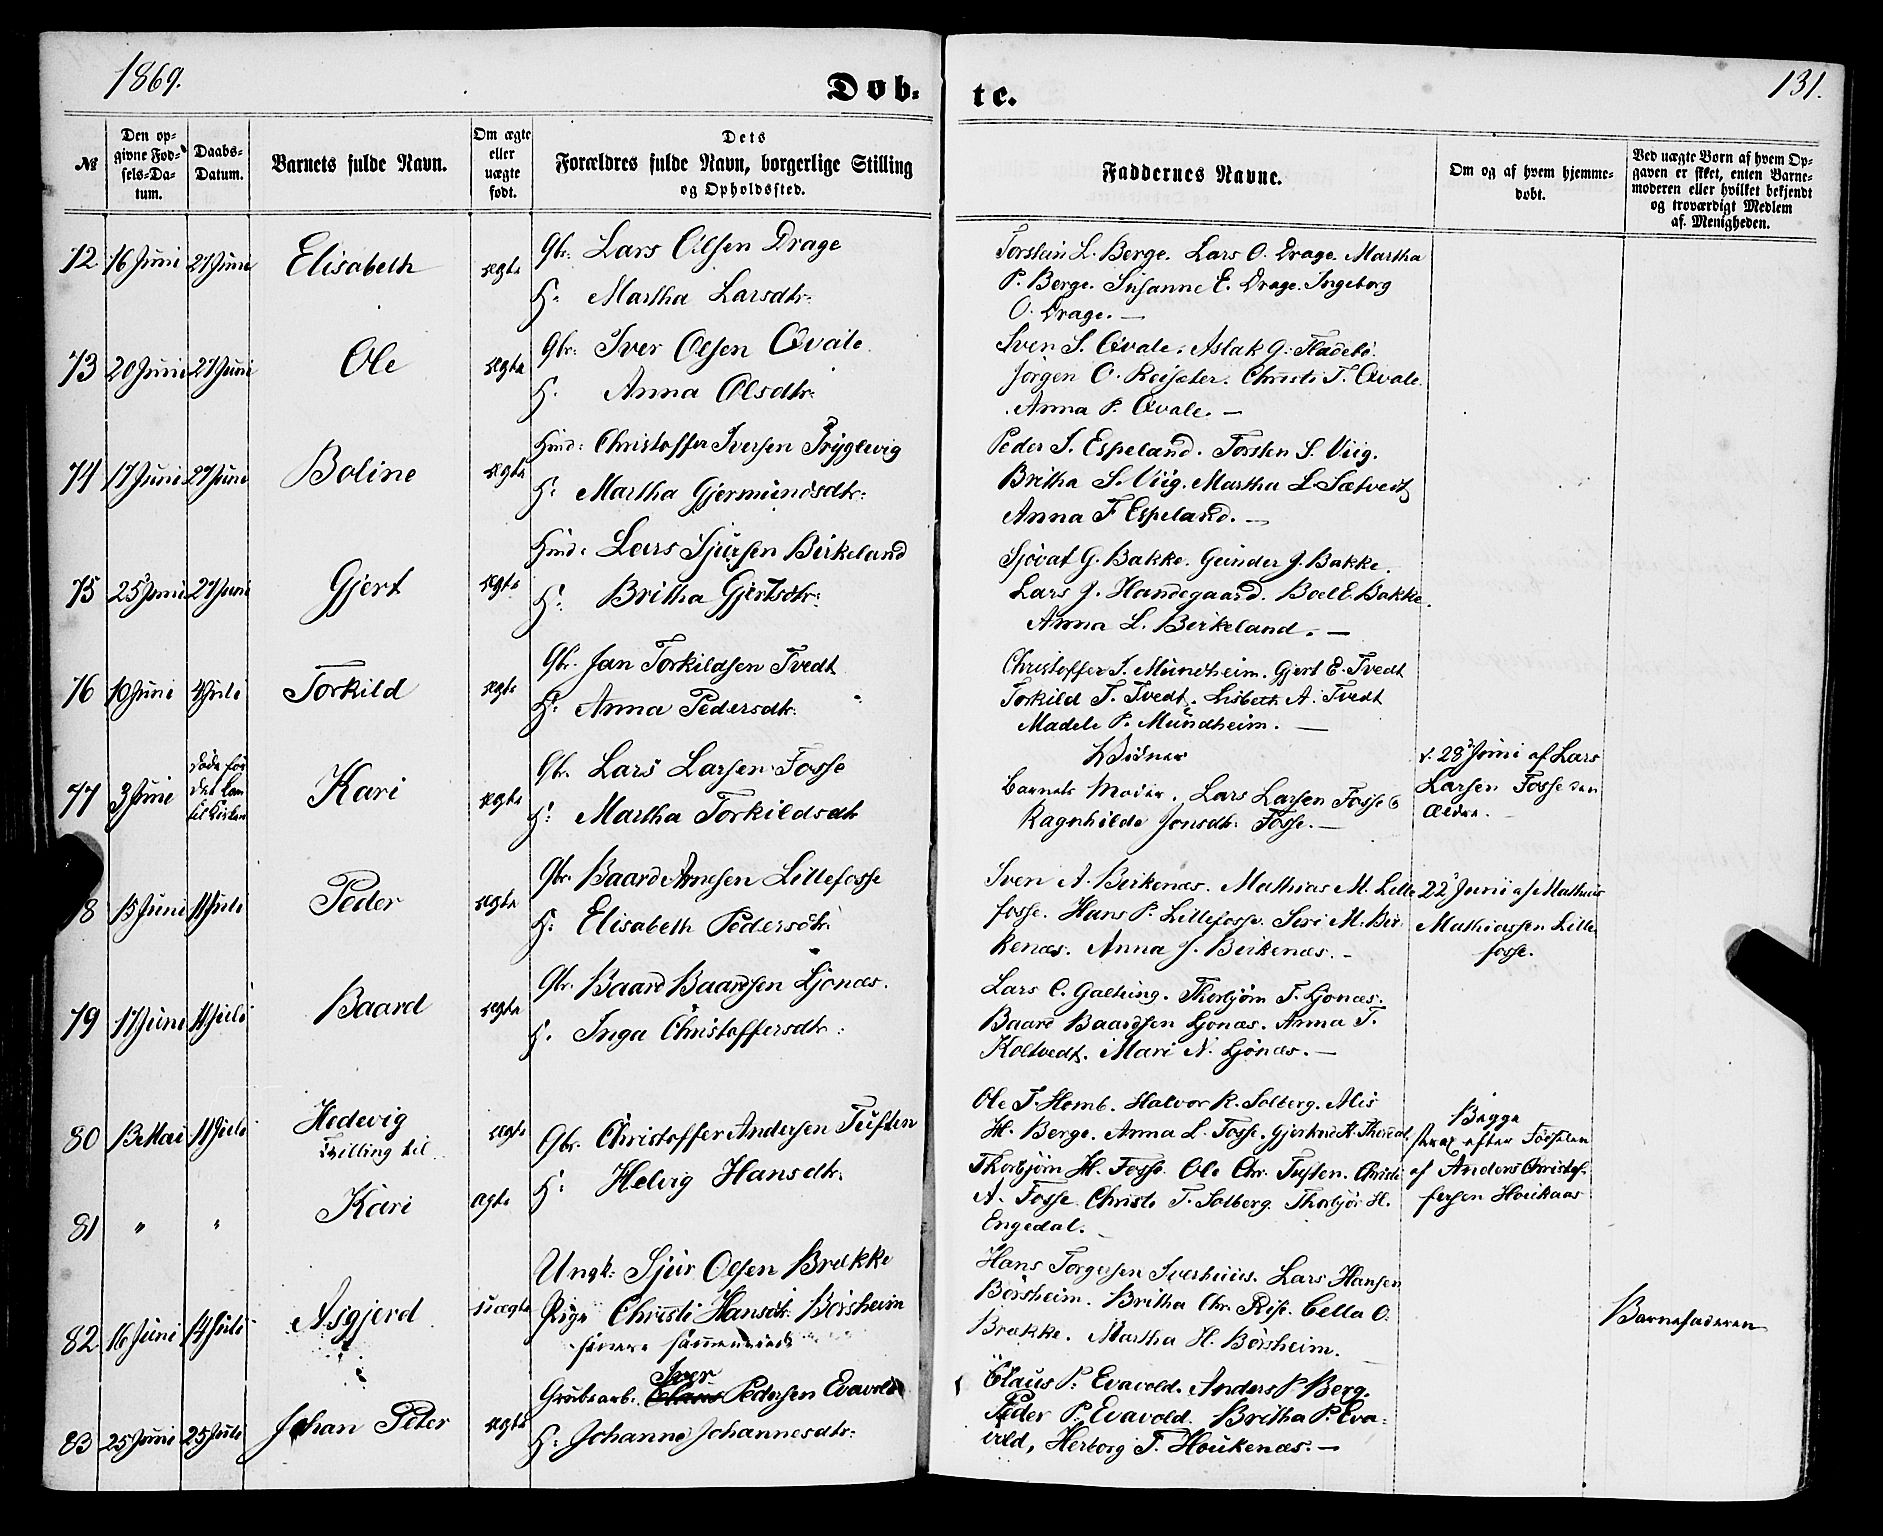 1869.
Døb-
te.
131.
№
Den op-
givne Fød-
sels-Da-
tum.
Daabs-
Datum.
Barnets fulde Navn.
Om ægte
eller
uægte
født.
Dets
Forældres fulde Navn, borgerlige Stilling
og Opholdssted.
Faddernes Navne.
Om og af hvem hjemme-
døbt.
Ved uægte Børn af hvem Op-
gaven er skeet, enten Barne-
moderen eller hvilket bekjendt
og troværdigt Medlem
af Menigheden.
72 16 Juni 27 Juni Elisabeth ægte Gbr: Lars Olsen Drage
H: Martha Larsdtr:
Torstein L. Berge. Lars O. Drage. Martha
P. Berge. Susanne E. Drage. Ingeborg
O. Drage. —
73 20 Juni 27 Juni Ole ægte Gbr: Iver Olsen Qvale
H. Anna Olsdtr:
Sven S. Qvale. Aslak G. Fladebø.
Jørgen O. Reisæter. Christi T. Qvale.
Anna P. Qvale. —
74 17 Juni 27 Juni Boline ægte Hmd: Christoffer Iversen Tryglevig
H: Martha Gjermundsdtr:
Peder I. Espeland. Torsten S. Viig.
Britha S. Viig. Martha L. Sætvedt
Anna T. Espeland. —
75 25 Juni 27 Juni Gjert ægte Hmd: Lars Sjursen Birkeland
H: Britha Gjertsdtr:
Sjovat G. Bakke. Gunder J. Bakke.
Lars J. Handegaard. Boel E. Bakke.
Anna L. Birkeland. —
76 10 Juni 4 Juli Torkild ægte Gbr. Jan Torkildsen Tvedt
H: Anna Pedersdtr:
Christoffer S. Mundheim. Gjert E. Tvedt
Torkild T. Tvedt. Lisbeth A. Tvedt
Madele P. Mundheim. —
77 3 Juni døde før
det kom
til Kirken Kari ægte Gbr. Lars Larsen Fosse
H: Martha Torkildsdtr
Vidner
Barnets Moder. Lars Larsen Fosse &
Ragnhilde Jonsdtr. Fosse. —
d. 28 Juni af Lars
Larsen Fosse den
Ældre.
78 15 Juni 11 Juli Peder ægte Gbr. Baard Arnesen Lillefosse
H: Elisabeth Pedersdtr:
Sven A. Birkenæs. Mathias M. Lille
fosse. Hans P. Lillefosse. Siri M. Bir-
kenæs. Anna J. Birkenæs. -
22 Juni af Mathias
Mathiassen Lille
fosse.
79 17 Juni 11 Juli Baard ægte Gbr. Baard Baardsen Ljonæs.
H. Inga Christoffersdtr:
Lars C. Galtung. Thorbjørn T. Ljonæs.
Baard Baardsen Ljonæs. Anna T.
Koltvedt. Mari N. Ljønæs. —
80 13 Mai 11 Juli Hedevig
Tvilling til ægte Gbr. Christoffer Andersen Tuften
H: Helvig Hansdtr:
Ole T. Homb. Halvor R. Solberg. Nils
H. Berge. Anna L. Fosse.
Thorbjørn H. Fosse. Ole Chr. Tuften. Christi
A. Fosse. Christi T. Solberg. Thorbjør H.
Engedal. -
Begge
strax efter Fødselen
af Anders Christof-
fersen
81 " " Kari ægte
82 16 Juni 14 Juli Asgjerd uægte Ungk: Sjur Olsen Brække
Pige Christi Hansdtr. Børsheim
Hans Torgersen Lars Hansen
Børsheim. Britha Chr. Rise. Cella O.
Brække. Martha H. Børsheim.
Barnefaderen
83 25 Juni 25 Juli Johan Peter ægte Grubearb. Iver Pedersen Evavold
H: Johanne Johannesdtr:
Claus P. Evavold. Anders P. Berg.
Peder P. Evavold. Britha P. Eva-
vold, Herborg T. Houkenæs. —